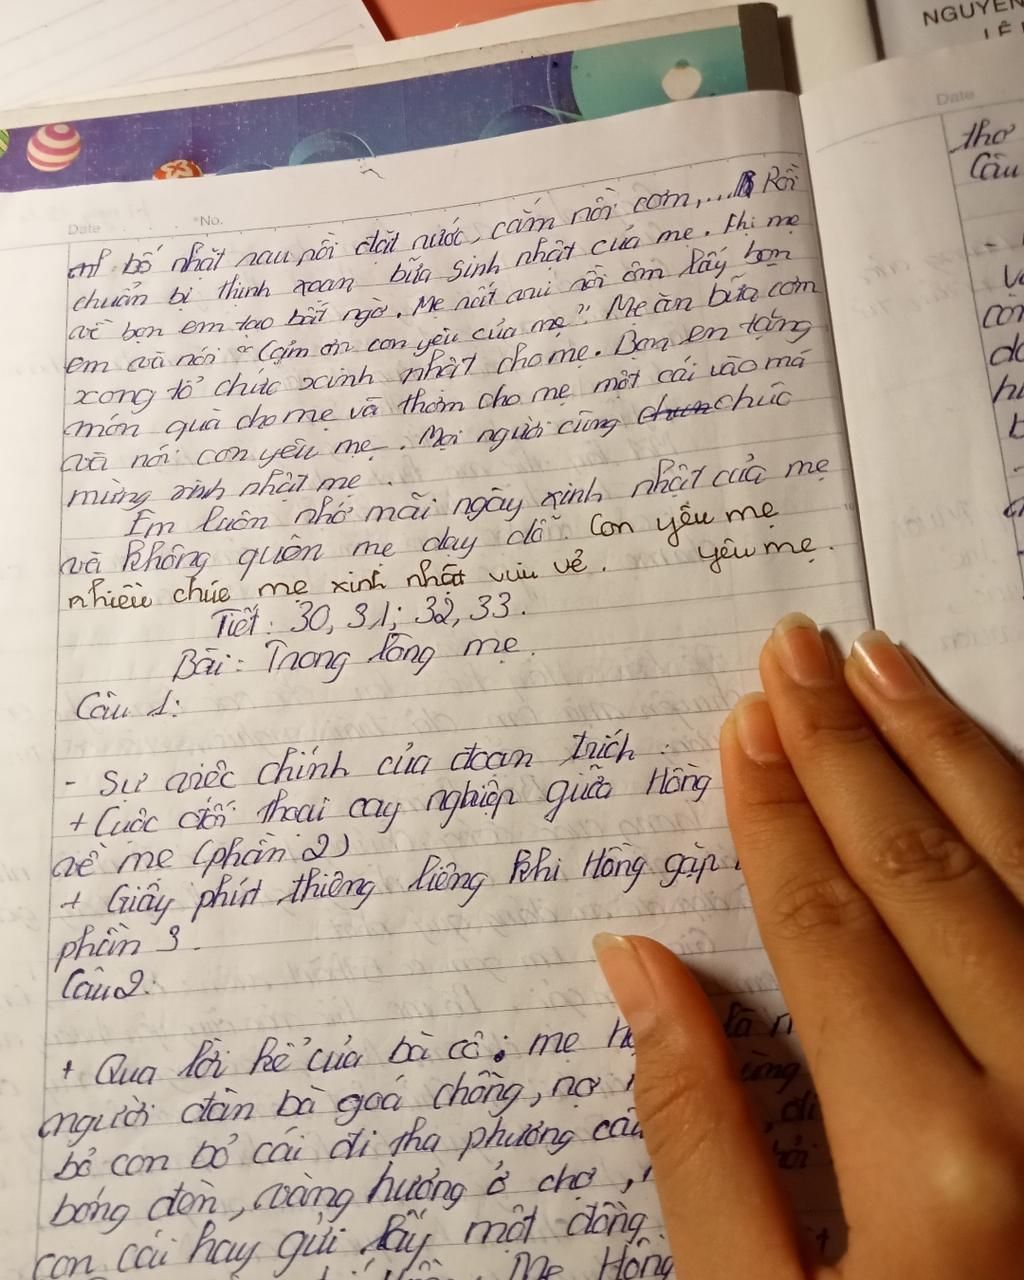 NGUYỄN
Date
*No.
bố nhặt rau rồi đặt nước, cắm nồi cơm,... Rồi
chuẩn bị thịnh xoan bữa sinh nhật của mẹ. Khi mẹ
về bọn em tạo bất ngờ. Mẹ rất vui rồi ôm lấy bọn
em và nói "Cảm ơn con yêu của mẹ". Mẹ ăn bữa cơm
xong tổ chức xinh nhật cho mẹ. Bọn em tặng
món quà cho mẹ và thơm cho mẹ một cái vào má
và nói con yêu mẹ. Mọi người cũng chúc
mừng sinh nhật mẹ.
Em luôn nhớ mãi ngày xinh nhật của mẹ
và không quên mẹ dạy dỗ. Con yêu mẹ
nhiều chúc mẹ xinh nhật vui vẻ. yêu mẹ.
Tiết: 30, 31; 32, 33.
Bài: Trong lòng mẹ.
Câu 1:
- Sự việc chính của đoạn trích:
+ Cuộc đối thoại cay nghiệp giữa Hồng
về mẹ (phần 2)
+ Giây phút thiêng liêng khi Hồng gặp
phần 3.
Câu 2:
+ Qua lời kể của bà cô: mẹ là
người đàn bà goá chồng, nợ
bỏ con bỏ cái đi tha phương cầu
bóng đèn, vàng hương ở chợ,
con cái hay gửi lấy một đồng
Mẹ Hồng
Date
thơ
Câu